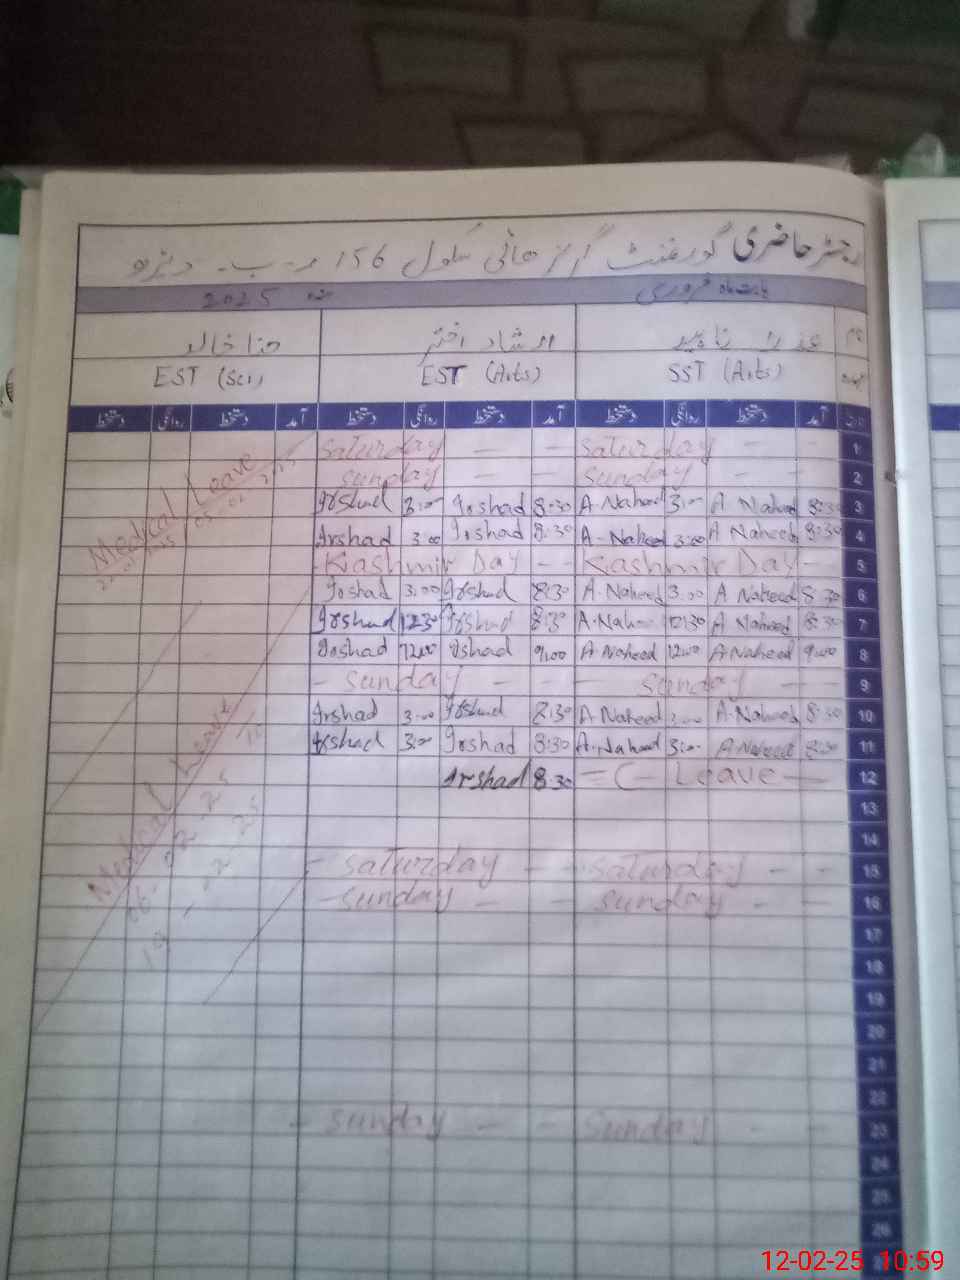 رجسٹر حاضری گورنمنٹ گرلز ہائی سکول 156 ر۔ب۔
بابت ماہ فروری 2025
نام عذرا ناہید ارشاد اختر حنا خالد
عہدہ SST (Arts) EST (Arts) EST (Sci)
تاریخ آمد دستخط روانگی دستخط آمد دستخط روانگی دستخط آمد دستخط روانگی دستخط
Saturday - - Saturday - - 1
Sunday - - Sunday - - 2
Irshad 3:00 Irshad 8:30 A-Naheed 3:00 A Naheed 8:30 3
Irshad 3:00 Irshad 8:30 A-Naheed 3:00 A Naheed 8:30 4
Kashmir Day - Kashmir Day - 5
Irshad 3:00 Irshad 8:30 A-Naheed 3:00 A Naheed 8:30 6
Irshad 12:30 Irshad 8:30 A-Naheed 12:30 A Naheed 8:30 7
Irshad 12:00 Irshad 9:00 A-Naheed 12:00 A-Naheed 9:00 8
- Sunday - - - Sunday - - 9
Irshad 3:00 Irshad 8:30 A-Naheed 3:00 A-Naheed 8:30 10
Irshad 3:00 Irshad 8:30 A-Naheed 3:00 A-Naheed 8:30 11
Irshad 8:30 = C - Leave - 12
13
14
- Saturday - - Saturday - - 15
- Sunday - - Sunday - - 16
17
18
19
20
21
22
- Sunday - - Sunday - - 23
24
25
26
Medical Leave
05-02-2025
Medical Leave
06-02-25
12-02-25 10:59